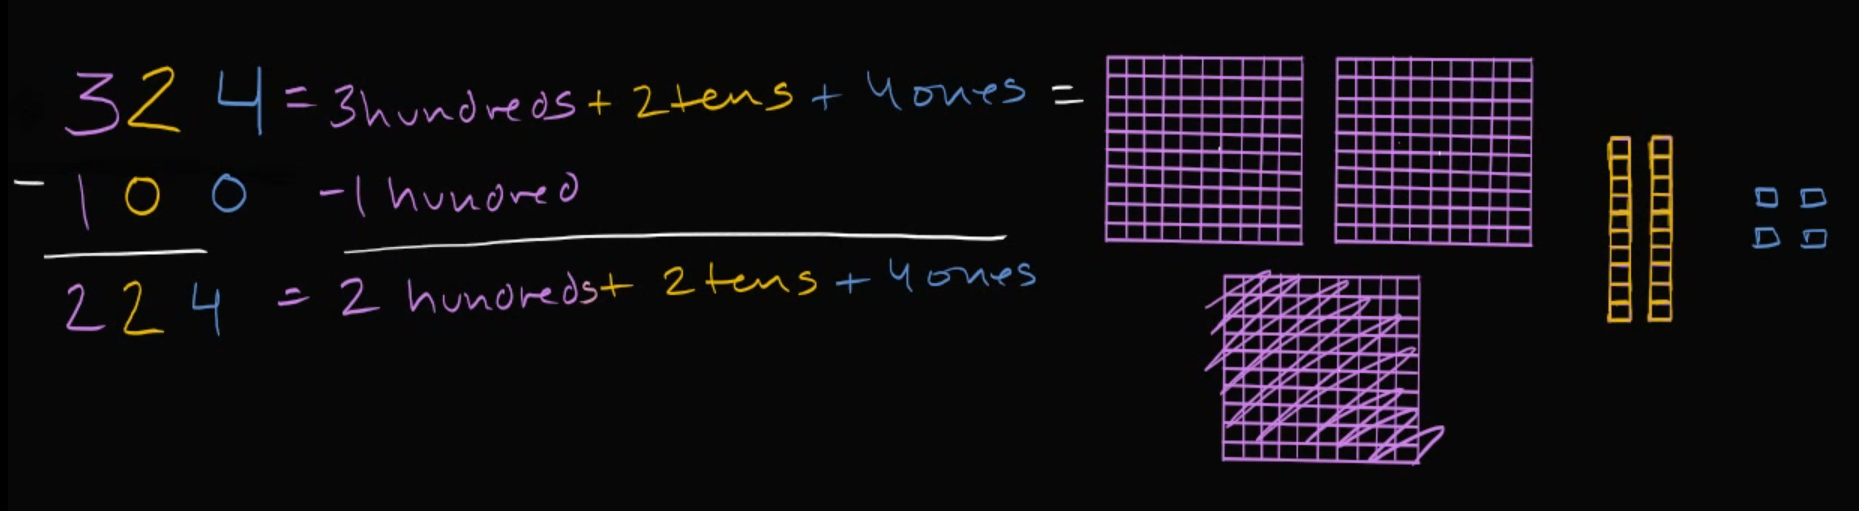 324 = 3 hundreds + 2 tens + 4 ones =
- 100 -1 hundred
224 = 2 hundreds + 2 tens + 4 ones